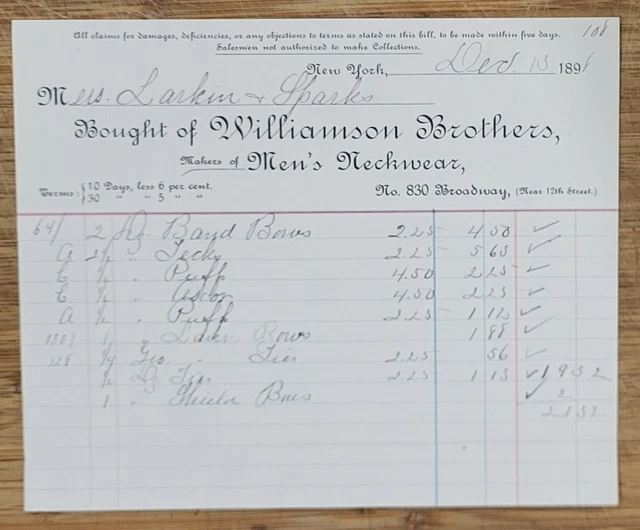 108
All claims for damages, deficiencies, or any objections to terms as stated on this bill, to be made within five days.
Salesmen not authorized to make Collections.
New York, Dec. 13 1891
Mess. Larkin & Sparks
Bought of Williamson Brothers,
Makers of Men's Neckwear,
Terms: { 10 Days, less 6 per cent.
30 " " 5 " "
No. 830 Broadway, (Near 12th Street.)
64/ 2 Dz Band Bows 2.25 4 50 ✓
A 2½ " Tecks 2.25 5 63 ✓
C ½ " Puff 4.50 2 25 ✓
C ½ " Ascot 4.50 2 25 ✓
A ½ " Puff 2.25 1 12 ✓
1 " Bows 1 88 ✓
128 ¼ " Ties 2.25 56 ✓
½ Dz Ties 2.25 1 13 ✓ 19 32
1 " Bows ✓ 2
21 32